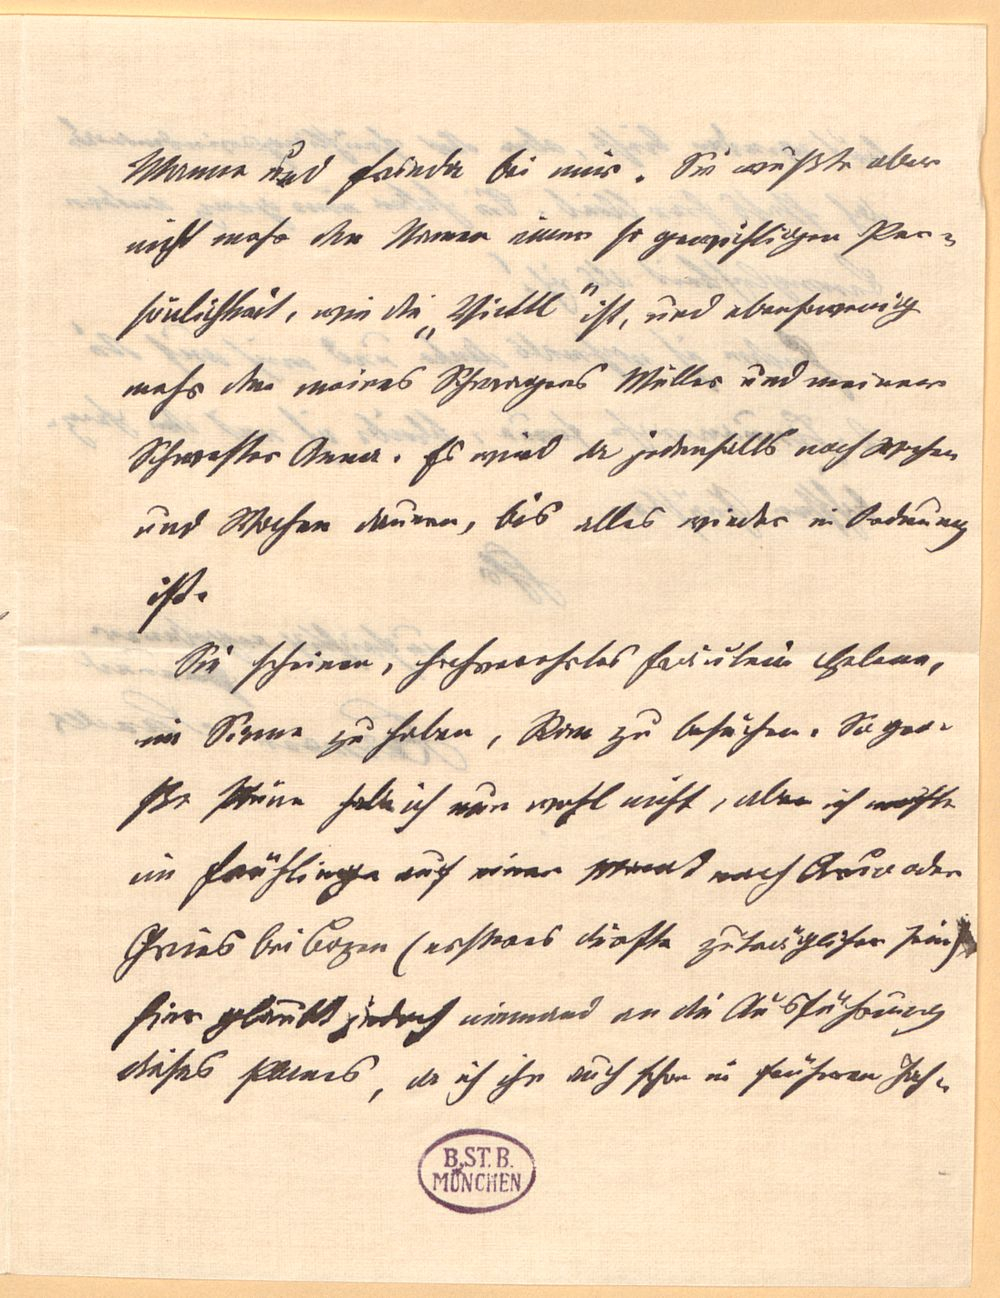 Mama und Frieda bei mir. Sie wußte aber
nicht mehr den Namen einer so gewichtigen Per-
sönlichkeit, wie die „Vickl“ ist, und ebensowenig
mehr den meines Schwagers Müller und meiner
Schwester Anna. Es wird da jedenfalls noch Wochen
und Wochen dauern, bis alles wieder in Ordnung
ist.
Sie scheinen, hochverehrtes Fräulein Helene,
im Sinne zu haben, Rom zu besuchen. So gro-
ße Pläne habe ich nun wohl nicht, aber ich möchte
im Frühlinge auf einen Monat nach Arco oder
Gries bei Bozen (ersteres dürfte zuträglicher sein)
hier glaubt jedoch niemand an die Ausführung
dieses Planes, da ich ihn auch schon in früheren Jah-
B. ST. B.
MÜNCHEN